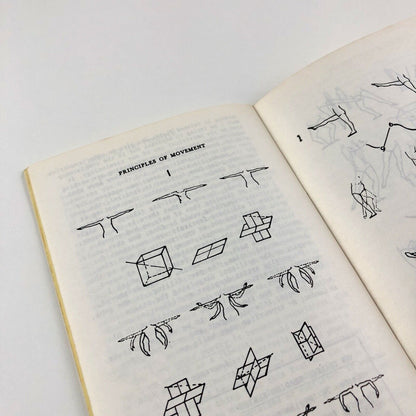 PRINCIPLES OF MOVEMENT
I
I